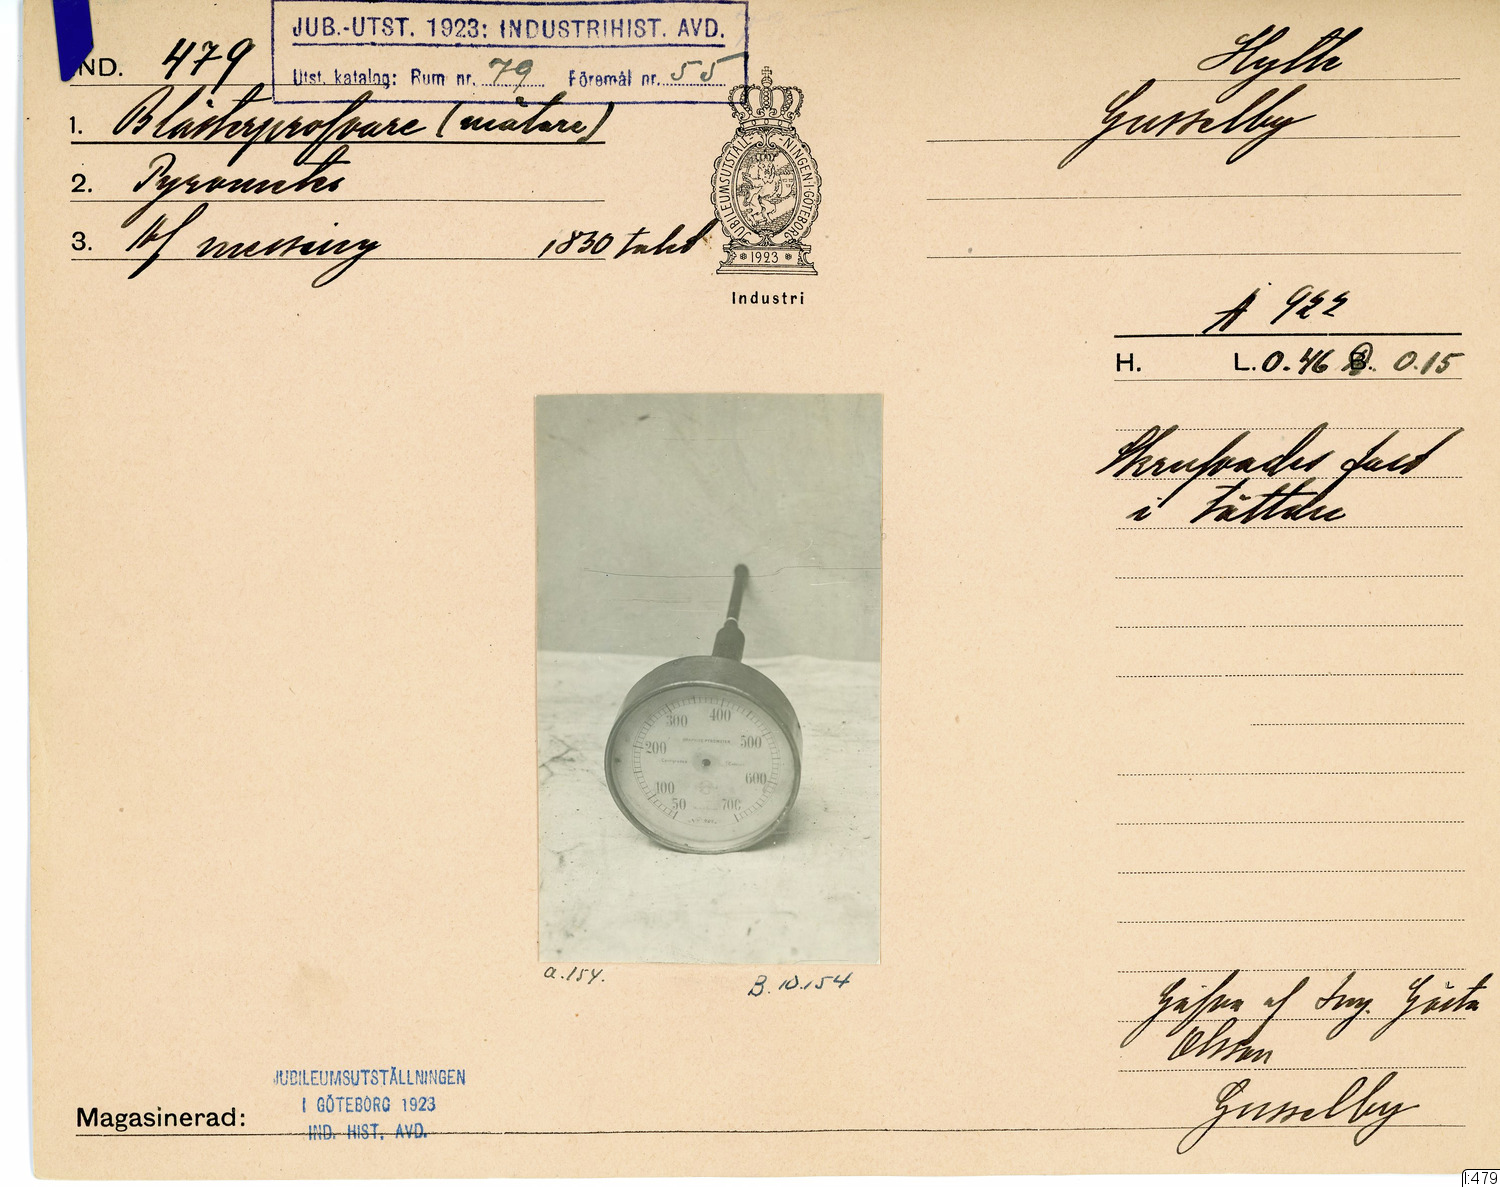 JUB.-UTST. 1923: INDUSTRIHIST. AVD.
Utst. katalog: Rum nr. 79 Föremål nr. 55
IND. 479
1. Blästerprofvare (mätare)
2. Pyrometer
3. Af messing 1830 talet
JUBILEUMSUTSTÄLL-NINGEN I GÖTEBORG
1923
Industri
Hytte
Gusselby
A 922
H. L. 0.46 B. 0.15
Skrufvades fast
i tättan
50 100 200 300 400 500 600 700
a.154.
B. 10.154
Gåfva af Ing. Gösta
Olsson
Gusselby
JUBILEUMSUTSTÄLLNINGEN
I GÖTEBORG 1923
IND. HIST. AVD.
Magasinerad:
I:479